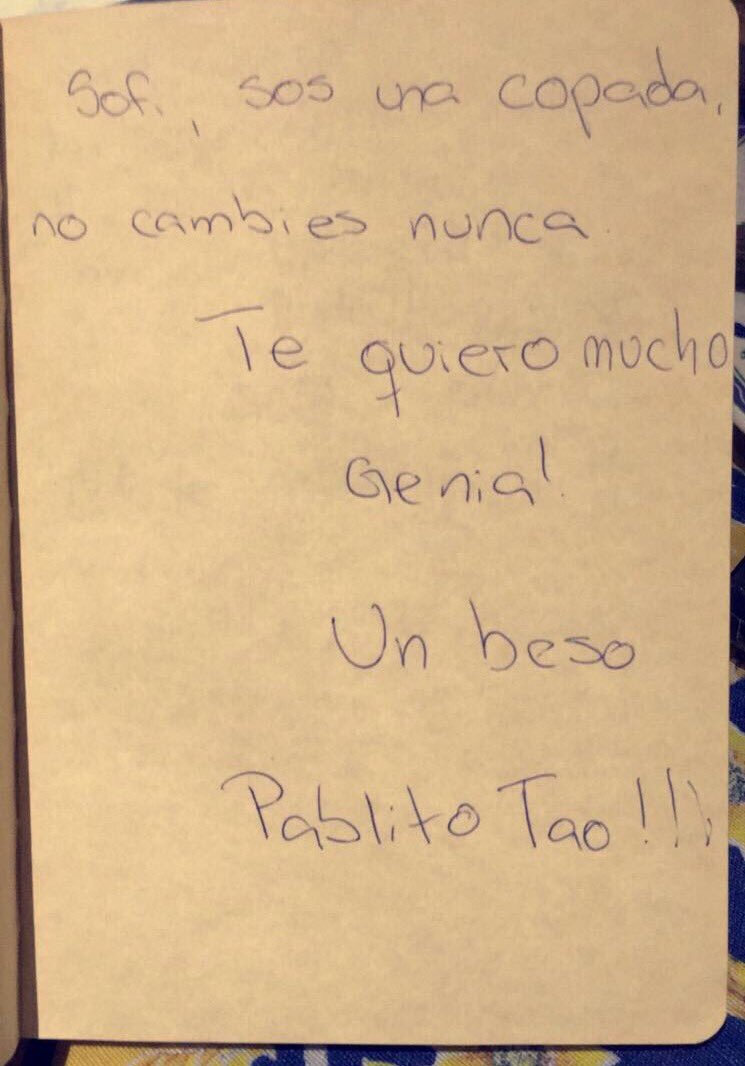 Sofi, sos una copada,
no cambies nunca.
Te quiero mucho
Genia!
Un beso
Pablito Tao!!!